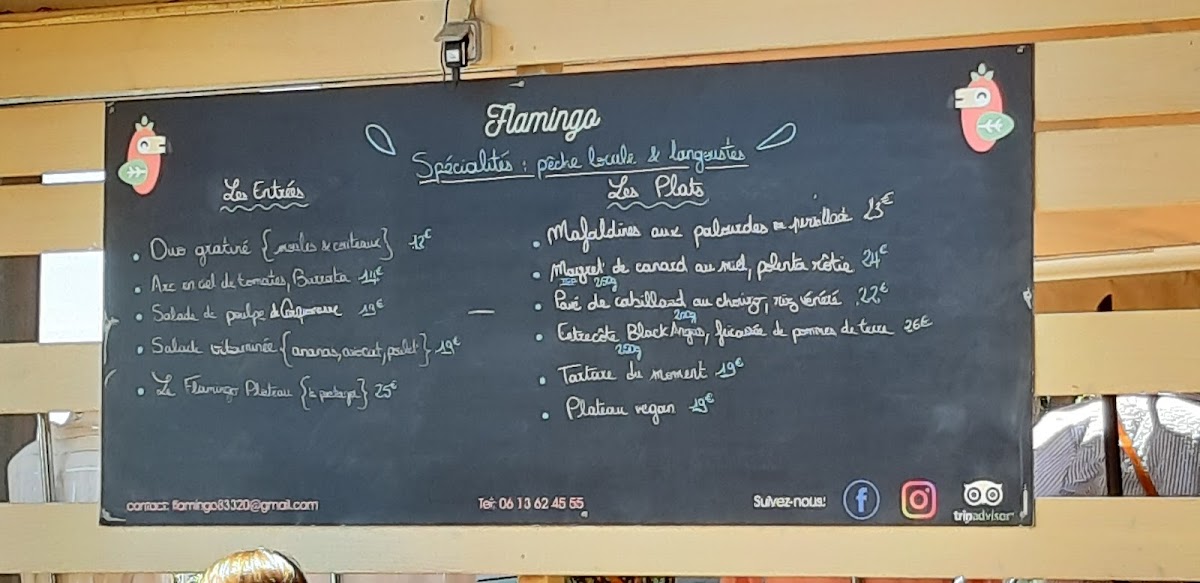 Flamingo
Spécialités : pêche locale & langoustes
Les Entrées
• Duo gratiné {moules & couteaux} 12€
• Arc en ciel de tomates, Burrata 14€
• Salade de poulpe 19€
• Salade vitaminée {ananas, avocat, poulet} 19€
• Le Flamingo Plateau {à partager} 25€
Les Plats
• Mafaldines aux palourdes en persillade 23€
• Magret de canard au miel, polenta rôtie 24€
IGP 250g
• Pavé de cabillaud au chorizo, riz vénéré 22€
200g
• Entrecôte Black Angus, fricassée de pommes de terre 26€
250g
• Tartare du moment 19€
• Plateau vegan 19€
contact: flamingo83320@gmail.com
Tel: 06 13 62 45 55
Suivez-nous:
tripadvisor